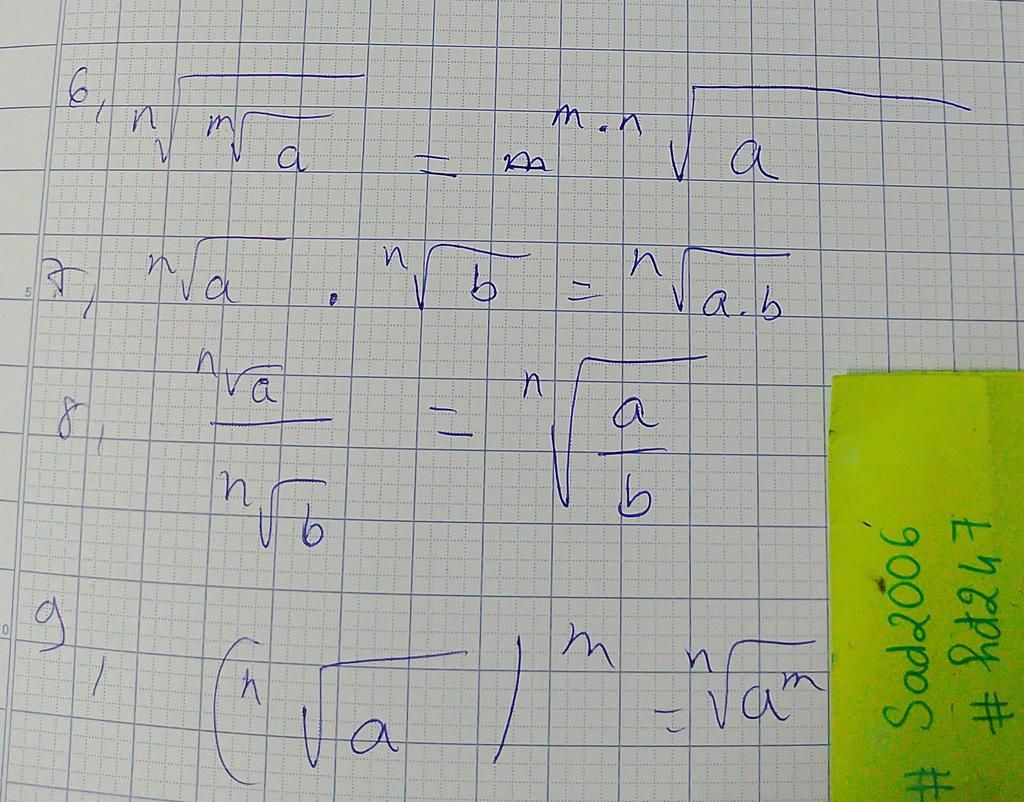 6, ⁿ√(ᵐ√a) = m ᵐ·ⁿ√a
7, ⁿ√a . ⁿ√b = ⁿ√(a.b)
8, ⁿ√a / ⁿ√b = ⁿ√(a/b)
9, (ⁿ√a)ᵐ = ⁿ√(aᵐ)
# Sad2006
# hd247